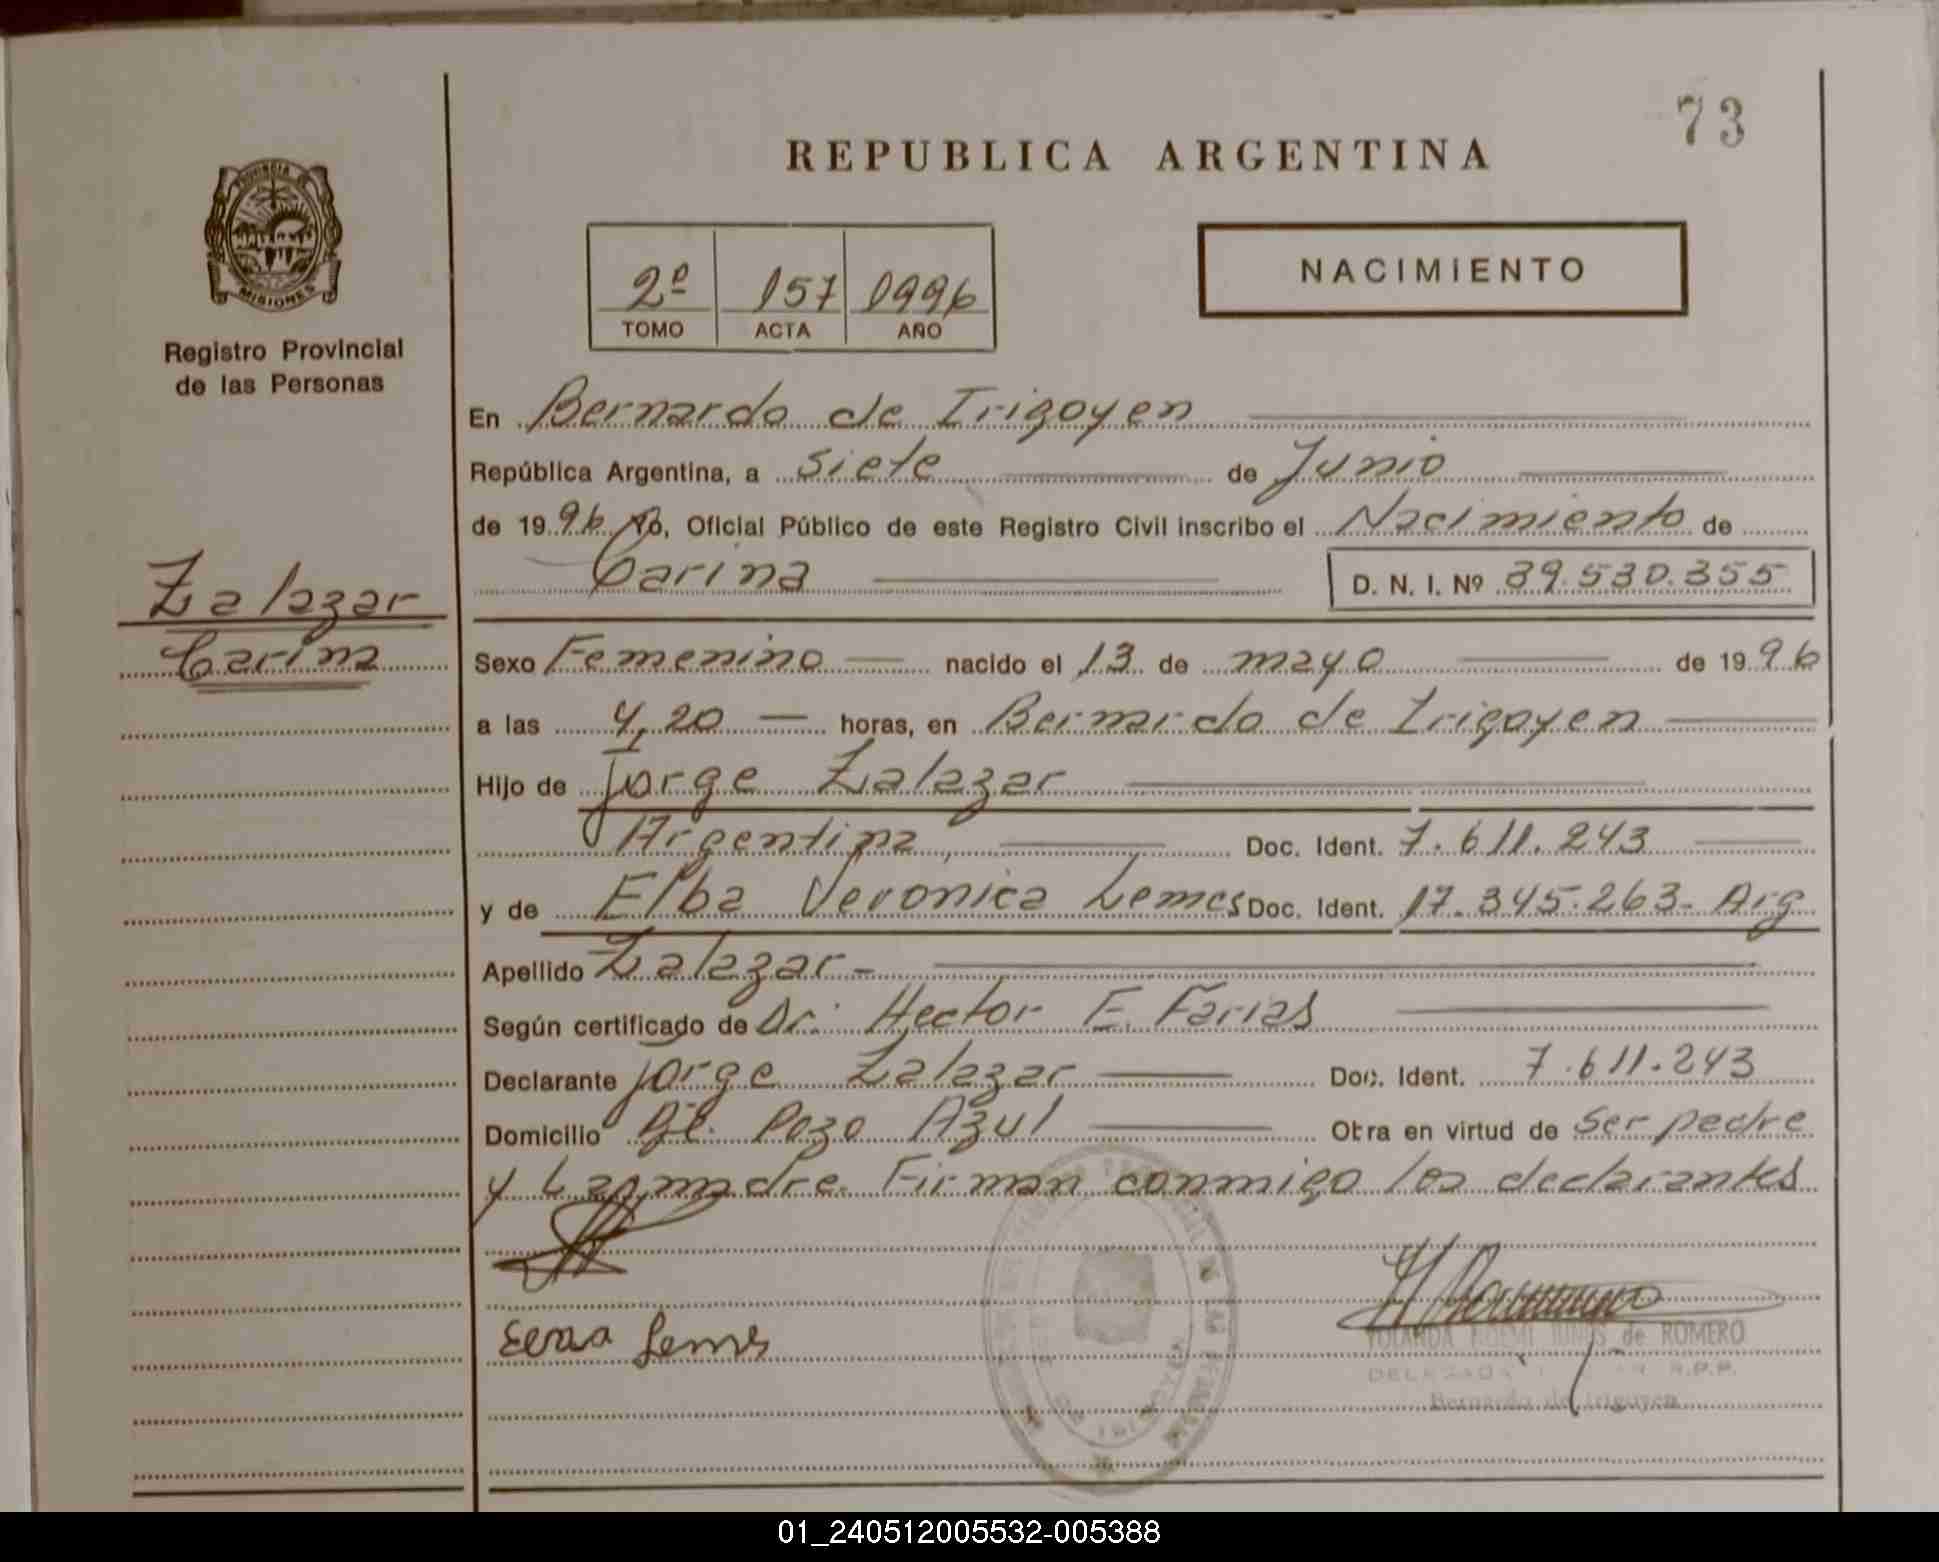 73
REPUBLICA ARGENTINA
PROVINCIA DE
MISIONES
Registro Provincial
de las Personas
2º 157 1996
TOMO ACTA AÑO
NACIMIENTO
En Bernardo de Irigoyen
República Argentina, a siete de Junio
de 1996 Yo, Oficial Público de este Registro Civil inscribo el Nacimiento de
Carina D. N. I. Nº 39.530.355
Zalazar
Carina
Sexo Femenino nacido el 13 de mayo de 1996
a las 4,20 horas, en Bernardo de Irigoyen
Hijo de Jorge Zalazar
Argentina, Doc. Ident. 7.611.243
y de Elba Veronica Lemes Doc. Ident. 17.345.263- Arg
Apellido Zalazar-
Según certificado de Dr. Hector E. Farias
Declarante Jorge Zalazar Doc. Ident. 7.611.243
Domicilio Pje. Pozo Azul Otra en virtud de ser padre
y La madre. Firman conmigo los declarantes
Lemes
YOLANDA NOEMI de ROMERO
R.P.P.
Bernardo de Irigoyen
01_240512005532-005388